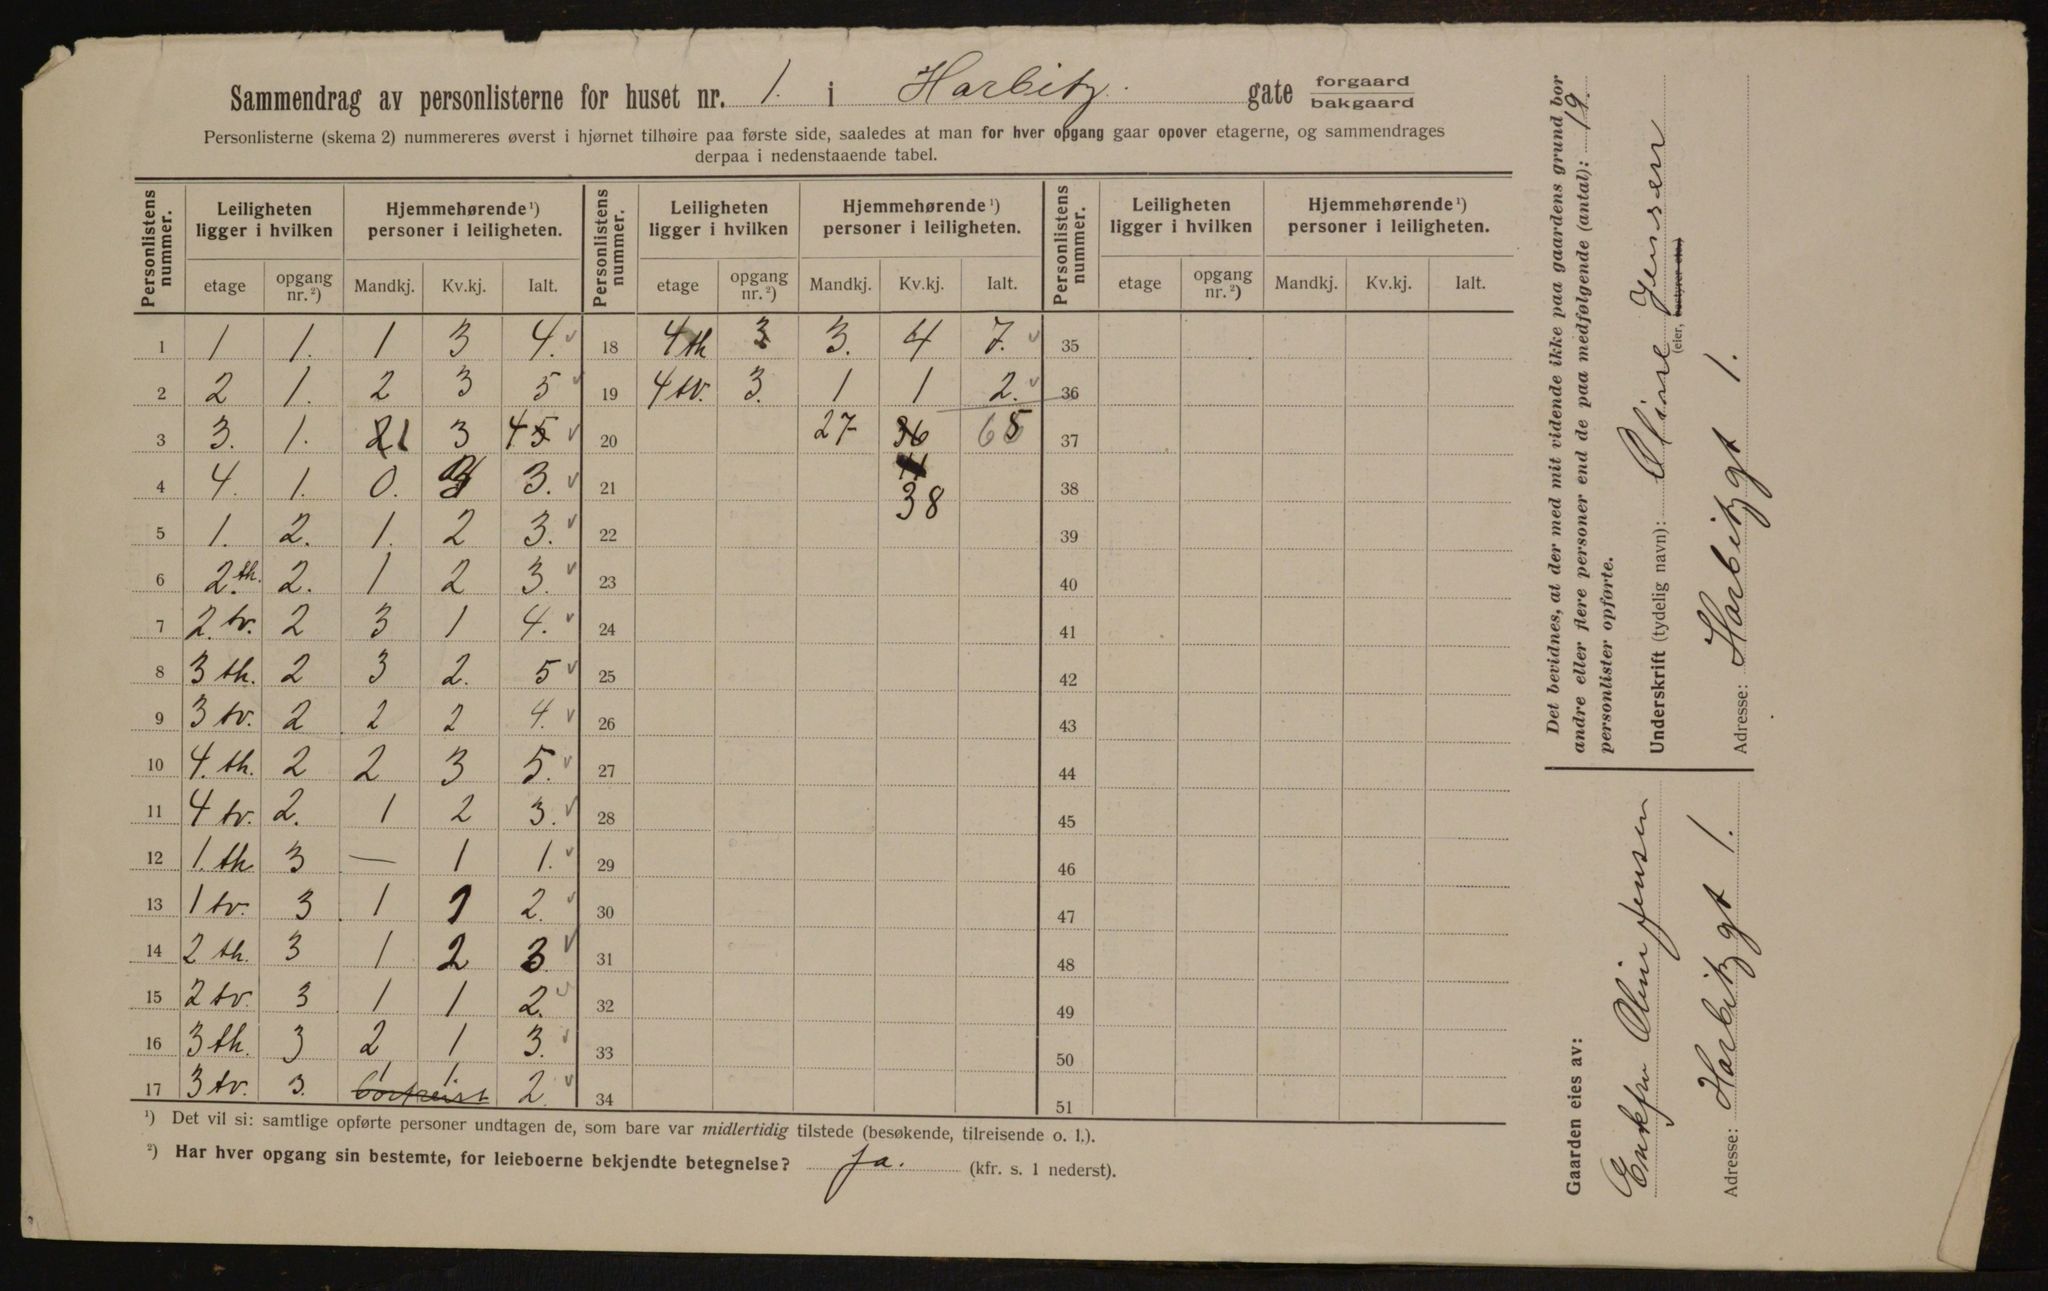 Sammendrag av personlisterne for huset nr. 1. i Harbitz. gate forgaard bakgaard
Personlisterne (skema 2) nummereres øverst i hjørnet tilhøire paa første side, saaledes at man for hver opgang gaar opover etagerne, og sammendrages
derpaa i nedenstaaende tabel.
Personlistens nummer. Leiligheten ligger i hvilken Hjemmehørende ¹) personer i leiligheten. Personlistens nummer. Leiligheten ligger i hvilken Hjemmehørende ¹) personer i leiligheten. Personlistens nummer. Leiligheten ligger i hvilken Hjemmehørende ¹) personer i leiligheten.
etage opgang nr. ²) Mandkj. Kv.kj. Ialt. etage opgang nr. ²) Mandkj. Kv.kj. Ialt. etage opgang nr. ²) Mandkj. Kv.kj. Ialt.
1 1 1. 1 3 4. 18 4 th 3 3. 4 7. 35
2 2 1. 2 3 5 19 4 tv. 3. 1 1 2. 36
3 3. 1. 21 3 45 20 27 36 65 37
4 4. 1. 0. 3 3. 21 38 38
5 1. 2. 1. 2 3. 22 39
6 2. th. 2. 1 2 3. 23 40
7 2. tv. 2 3 1 4. 24 41
8 3 th. 2 3 2. 5 25 42
9 3 tv. 2 2 2 4. 26 43
10 4. th. 2 2 3 5. 27 44
11 4 tv. 2. 1 2 3. 28 45
12 1. th 3 — 1 1. 29 46
13 1 tv. 3 1 1 2. 30 47
14 2 th. 3 1 2 3. 31 48
15 2 tv. 3 1 1 2. 32 49
16 3 th. 3 2 1 3. 33 50
17 3 tv. 3. bortreist 1 1 2. 34 51
¹) Det vil si: samtlige opførte personer undtagen de, som bare var midlertidig tilstede (besøkende, tilreisende o. l.).
²) Har hver opgang sin bestemte, for leieboerne bekjendte betegnelse? Ja. (kfr. s. 1 nederst).
Det bevidnes, at der med mit vidende ikke paa gaardens grund bor
andre eller flere personer end de paa medfølgende (antal): 19.
personlister opførte.
Underskrift (tydelig navn): Oline Jensen
(eier, bestyrer etc.)
Adresse: Harbitzgt 1.
Gaarden eies av:
Enkefru Oline Jensen
Adresse: Harbitzgt 1.